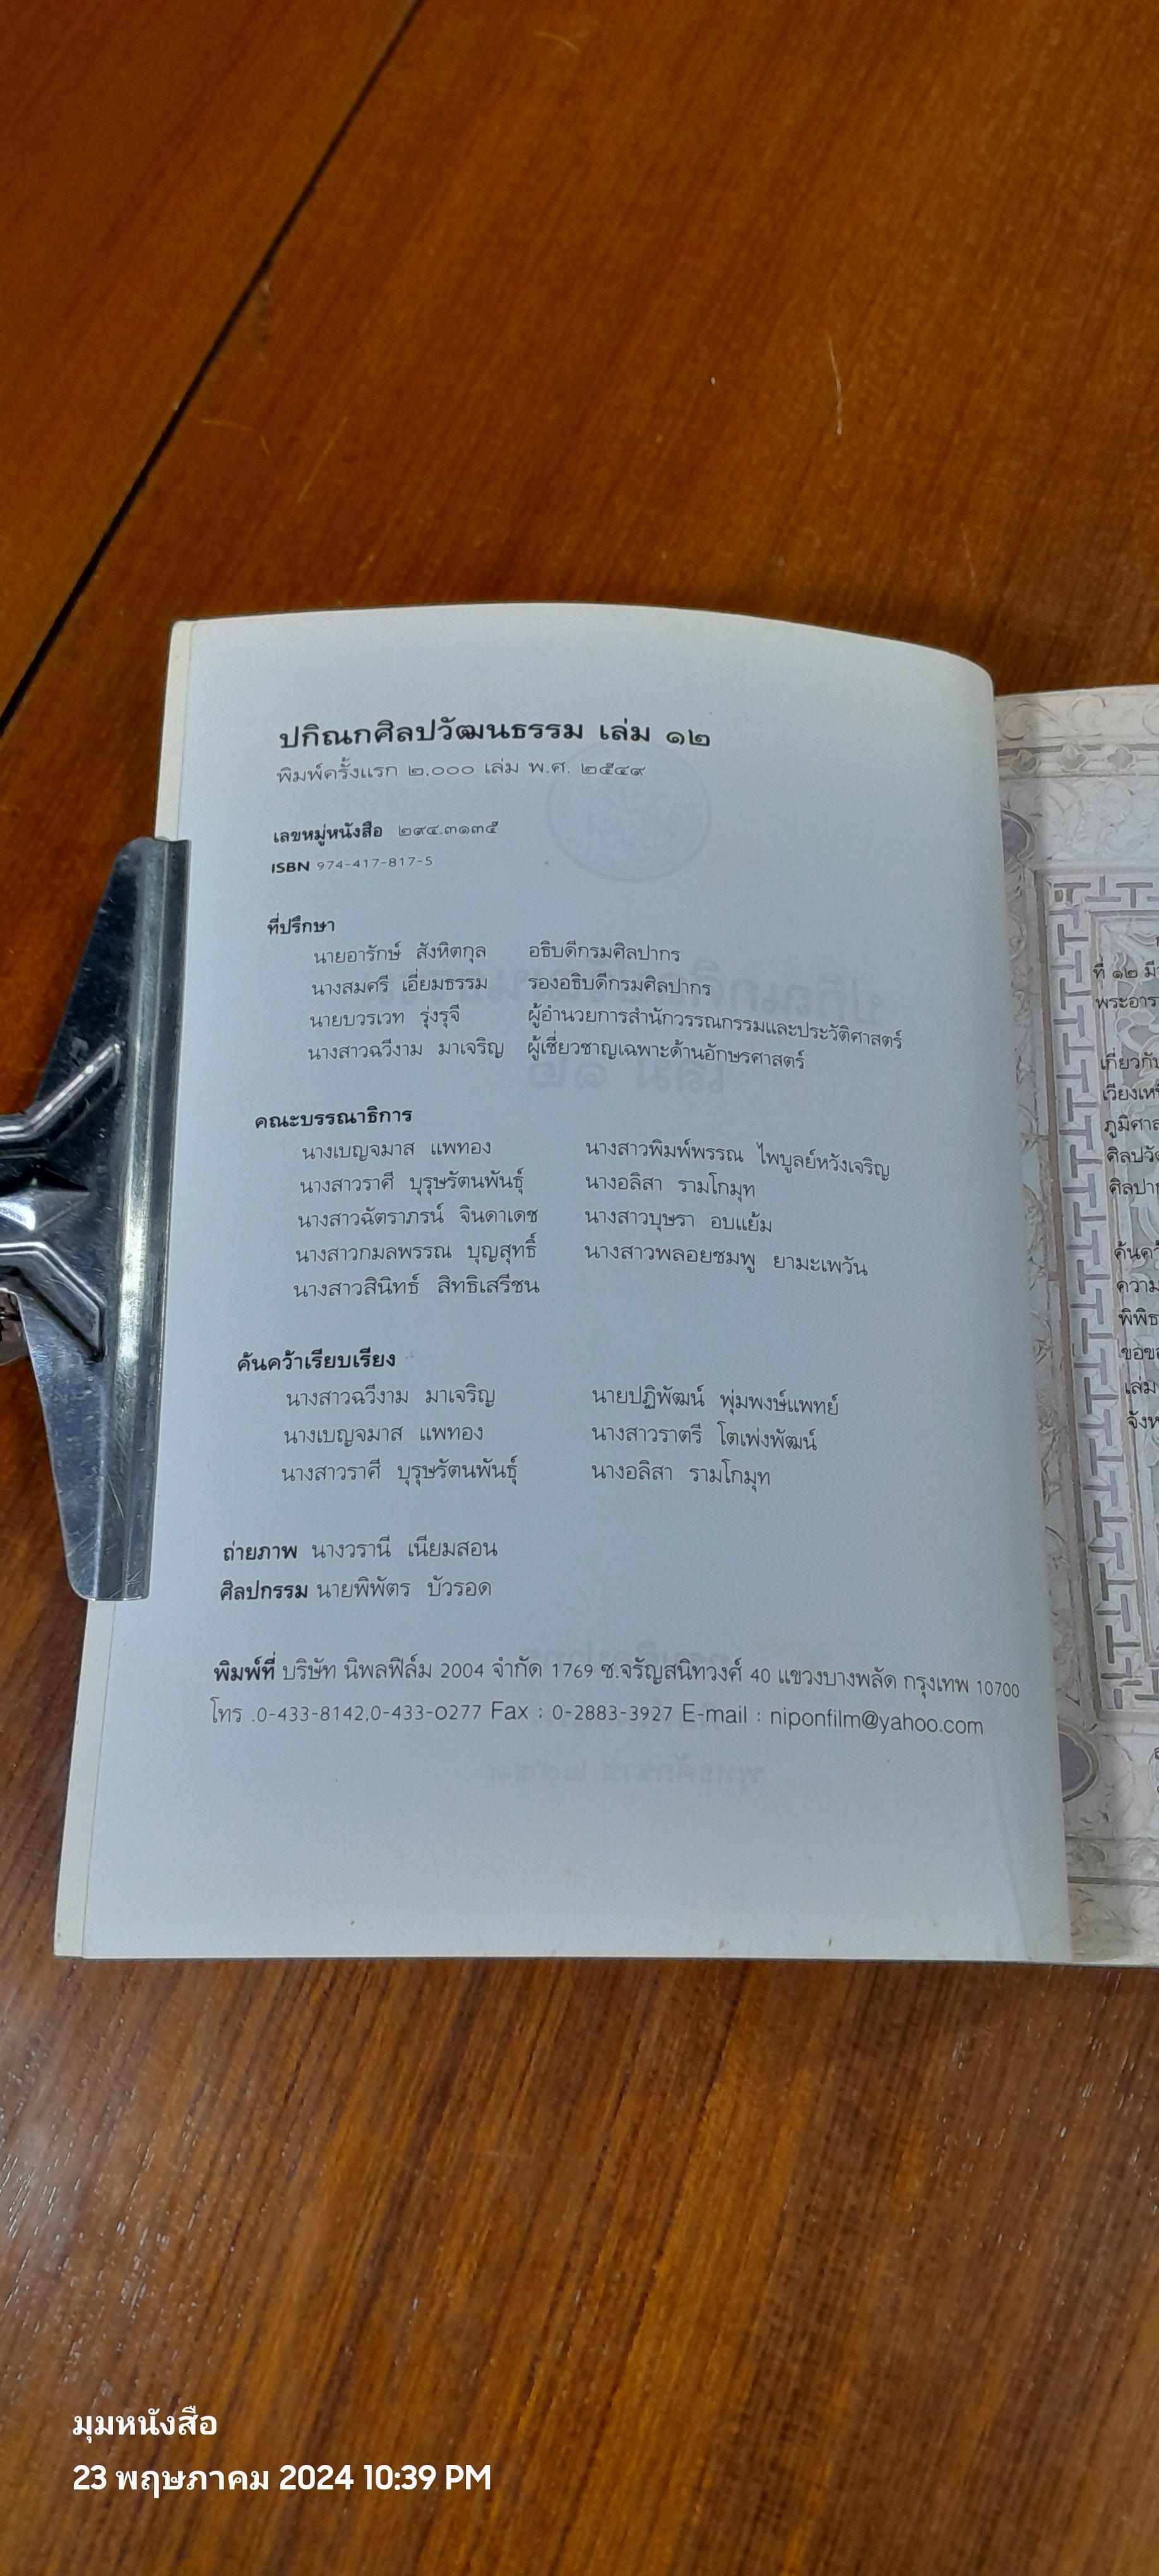 ปกิณกศิลปวัฒนธรรม เล่ม ๑๒
พิมพ์ครั้งแรก ๒,๐๐๐ เล่ม พ.ศ. ๒๕๔๙
เลขหมู่หนังสือ ๒๙๔.๓๑๓๕
ISBN 974-417-817-5
ที่ปรึกษา
นายอารักษ์ สังหิตกุล อธิบดีกรมศิลปากร
นางสมศรี เอี่ยมธรรม รองอธิบดีกรมศิลปากร
นายบวรเวท รุ่งรุจี ผู้อำนวยการสำนักวรรณกรรมและประวัติศาสตร์
นางสาวฉวีงาม มาเจริญ ผู้เชี่ยวชาญเฉพาะด้านอักษรศาสตร์
คณะบรรณาธิการ
นางเบญจมาส แพทอง นางสาวพิมพ์พรรณ ไพบูลย์หวังเจริญ
นางสาวราศี บุรุษรัตนพันธุ์ นางอลิสา รามโกมุท
นางสาวฉัตราภรน์ จินดาเดช นางสาวบุษรา อบแย้ม
นางสาวกมลพรรณ บุญสุทธิ์ นางสาวพลอยชมพู ยามะเพวัน
นางสาวสินิทธ์ สิทธิเสรีชน
ค้นคว้าเรียบเรียง
นางสาวฉวีงาม มาเจริญ นายปฏิพัฒน์ พุ่มพงษ์แพทย์
นางเบญจมาส แพทอง นางสาวราตรี โตเพ่งพัฒน์
นางสาวราศี บุรุษรัตนพันธุ์ นางอลิสา รามโกมุท
ถ่ายภาพ นางวรานี เนียมสอน
ศิลปกรรม นายพิพัตร บัวรอด
พิมพ์ที่ บริษัท นิพลฟิล์ม 2004 จำกัด 1769 ซ.จรัญสนิทวงศ์ 40 แขวงบางพลัด กรุงเทพ 10700
โทร .0-433-8142,0-433-0277 Fax : 0-2883-3927 E-mail : niponfilm@yahoo.com
ที่ ๑๒
เกี่ยวกับ
ความ
เล่ม
มุมหนังสือ
23 พฤษภาคม 2024 10:39 PM